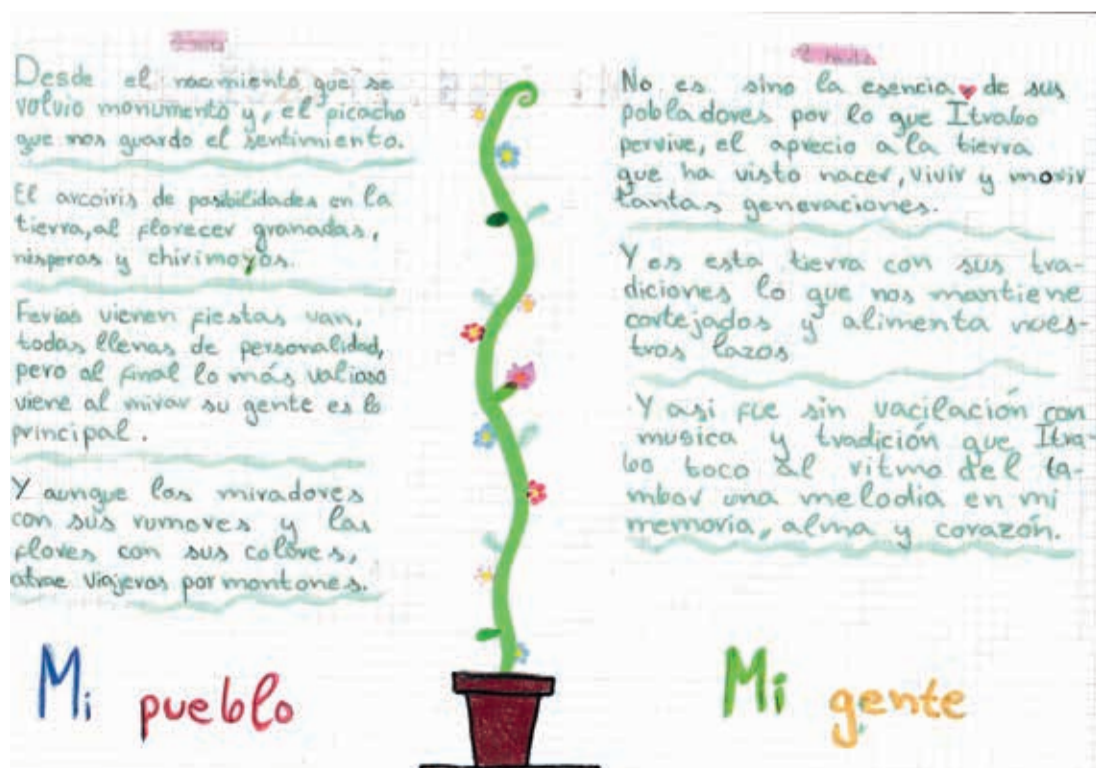 Desde el nacimiento que se
volvio monumento y, el picacho
que nos guardo el sentimiento.
El arcoiris de posibilidades en la
tierra, al florecer granadas,
nisperos y chirimoyos.
Ferias vienen fiestas van,
todas llenas de personalidad,
pero al final lo más valioso
viene al mirar su gente es lo
principal.
Y aunque los miradores
con sus rumores y las
flores con sus colores,
atrae viajeros por montones.
Mi pueblo
No es sino la esencia de sus
pobladores por lo que Itrabo
pervive, el aprecio a la tierra
que ha visto nacer, vivir y morir
tantas generaciones.
Y es esta tierra con sus tra-
diciones lo que nos mantiene
cortejados y alimenta nues-
tros lazos
Y asi fue sin vacilación con
musica y tradición que Itra-
bo toco al ritmo del ta-
mbor una melodia en mi
memoria, alma y corazón.
Mi gente